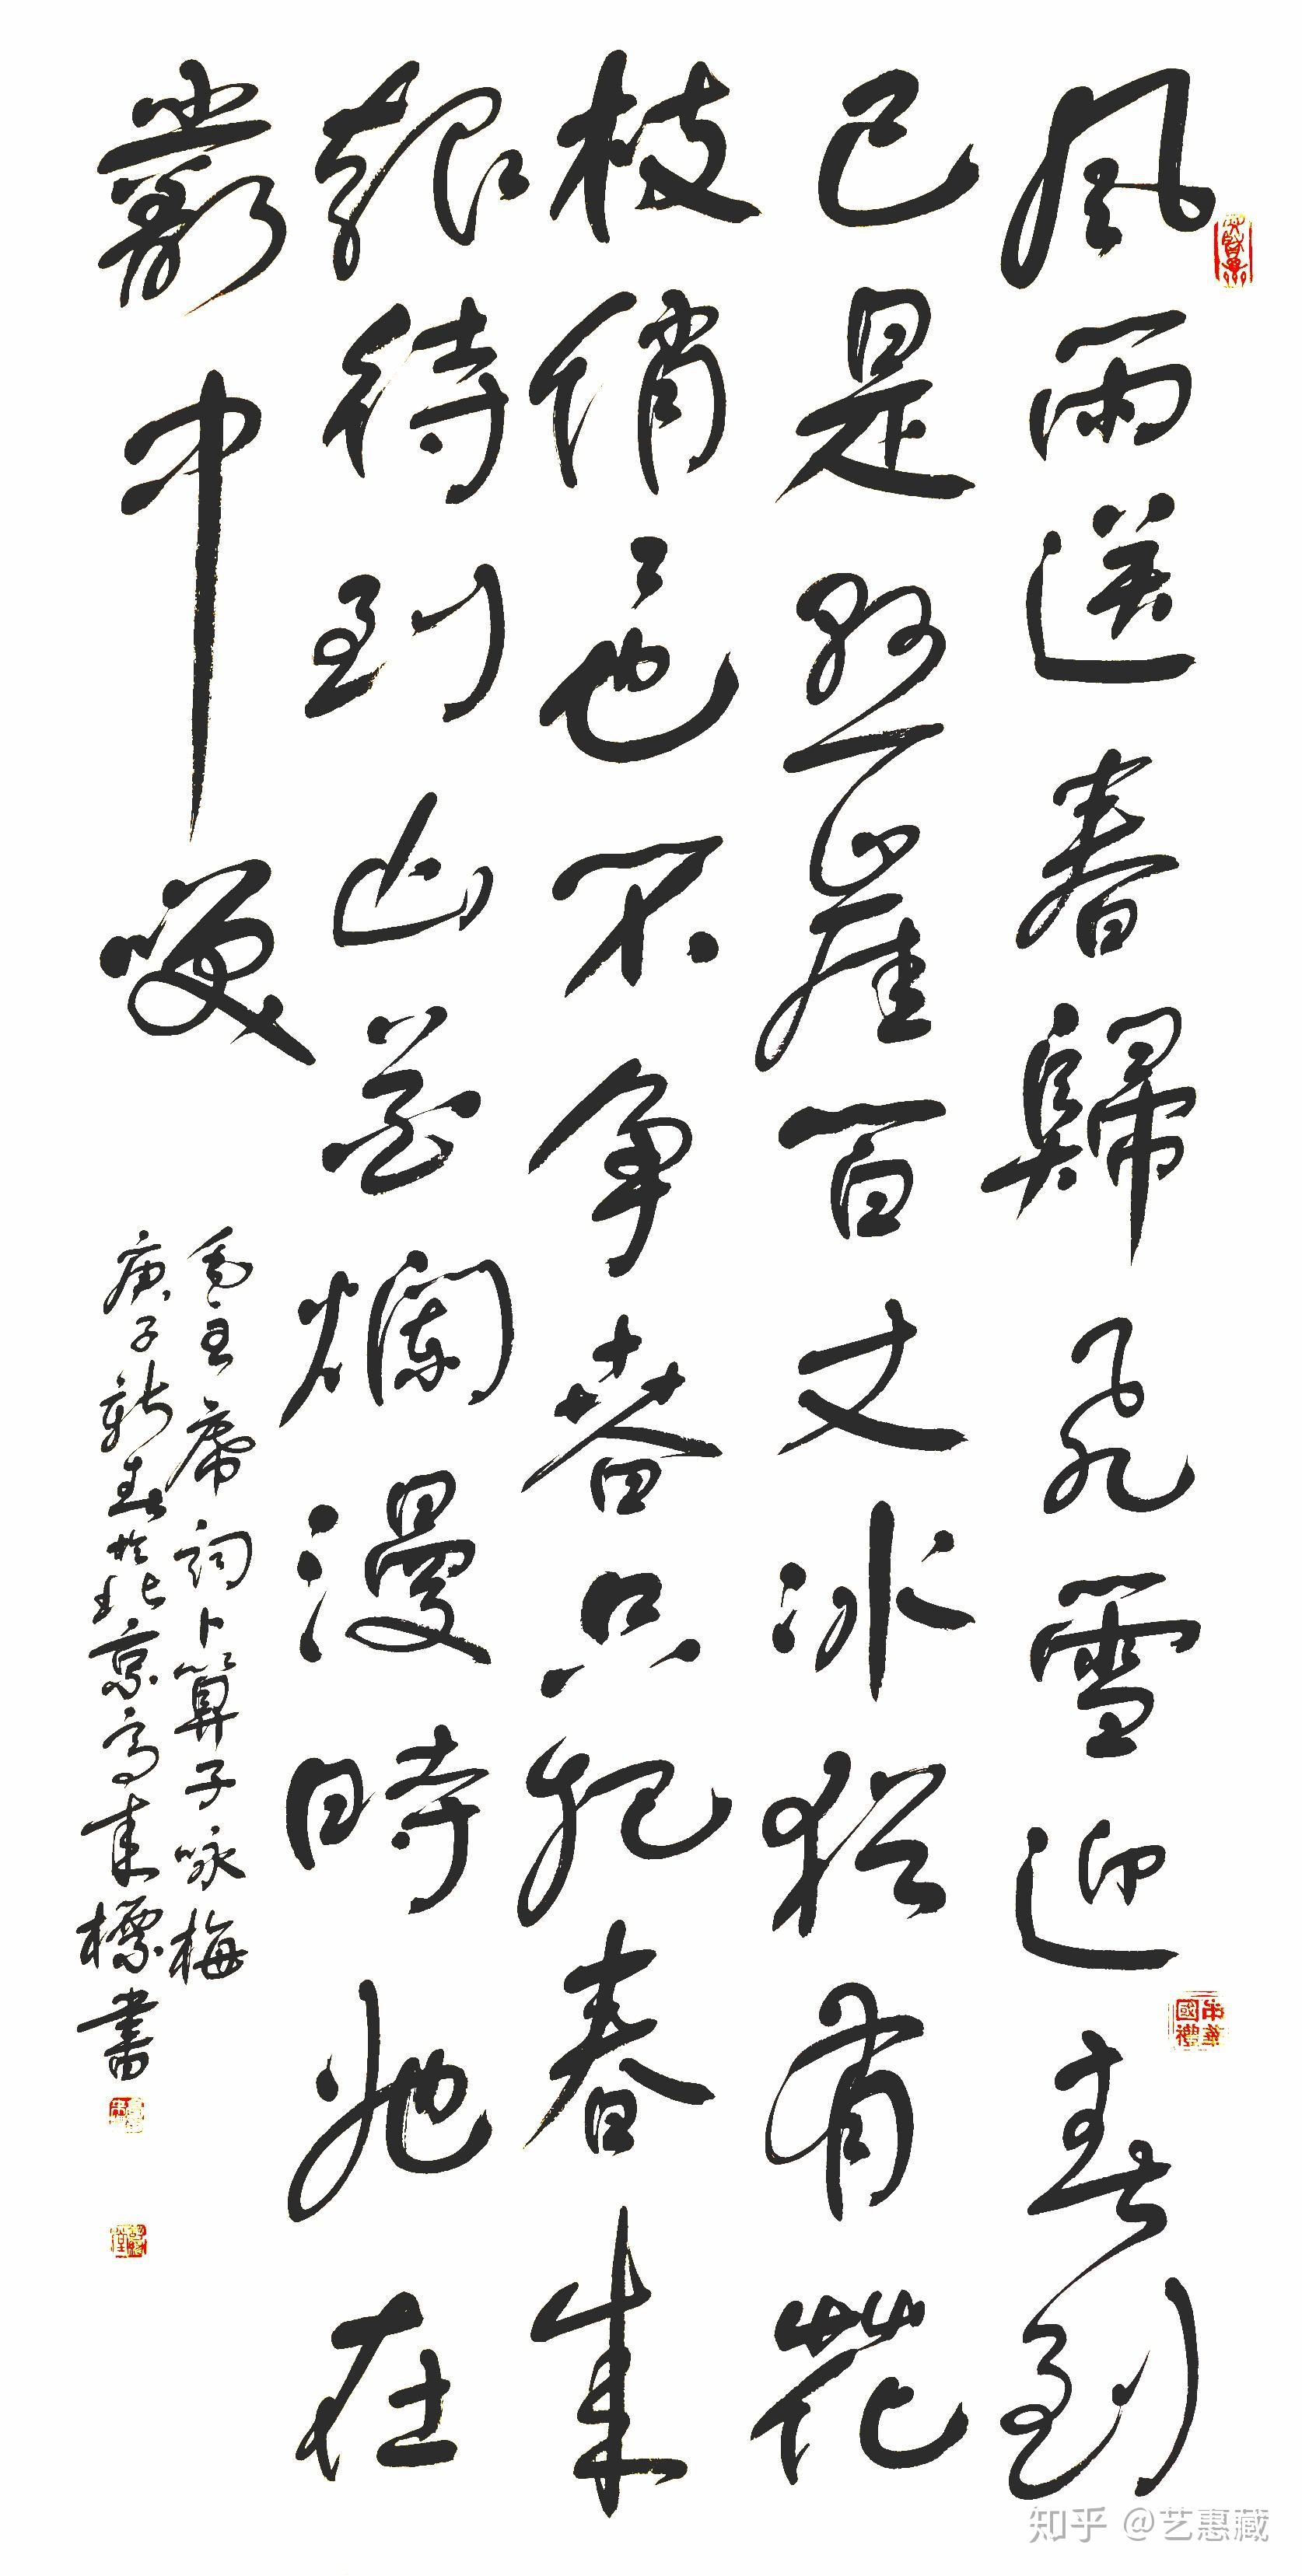 風雨送春歸飛雪迎春到
已是懸崖百丈冰猶有花
枝俏々也不争春只把春来
報待到山花爛漫時她在
叢中咲
毛主席詞卜算子咏梅
庚子新春於北京高標書
中華國禮
知乎 @艺惠藏